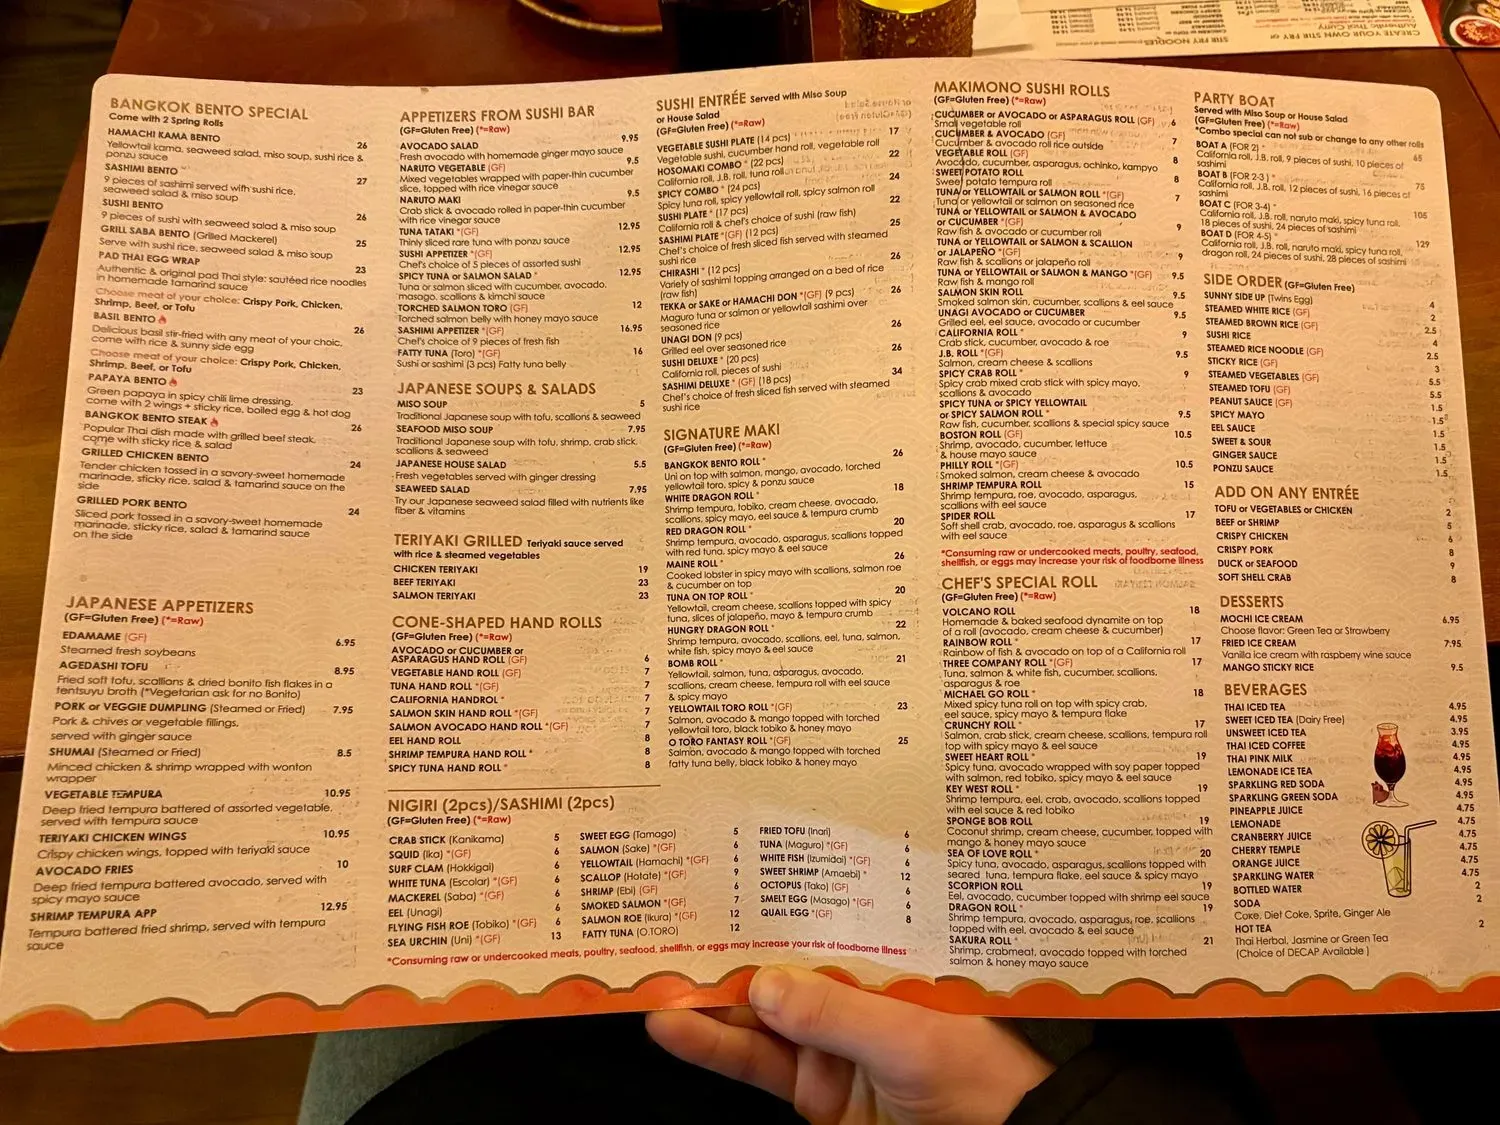 BANGKOK BENTO SPECIAL
Come with 2 Spring Rolls
HAMACHI KAMA BENTO 26
Yellowtail kama, seaweed salad, miso soup, sushi rice &
ponzu sauce
SASHIMI BENTO 27
9 pieces of sashimi served with sushi rice,
seaweed salad & miso soup
SUSHI BENTO 26
9 pieces of sushi with seaweed salad & miso soup
GRILL SABA BENTO (Grilled Mackerel) 25
Serve with sushi rice, seaweed salad & miso soup
PAD THAI EGG WRAP 23
Authentic & original pad Thai style: sautéed rice noodles
in homemade tamarind sauce
Choose meat of your choice: Crispy Pork, Chicken,
Shrimp, Beef, or Tofu
BASIL BENTO 26
Delicious basil stir-fried with any meat of your choic,
come with rice & sunny side egg
Choose meat of your choice: Crispy Pork, Chicken,
Shrimp, Beef, or Tofu
PAPAYA BENTO 23
Green papaya in spicy chili lime dressing,
come with 2 wings + sticky rice, boiled egg & hot dog
BANGKOK BENTO STEAK 26
Popular Thai dish made with grilled beef steak,
come with sticky rice & salad
GRILLED CHICKEN BENTO 24
Tender chicken tossed in a savory-sweet homemade
marinade, sticky rice, salad & tamarind sauce on the
side
GRILLED PORK BENTO 24
Sliced pork tossed in a savory-sweet homemade
marinade, sticky rice, salad & tamarind sauce
on the side
JAPANESE APPETIZERS
(GF=Gluten Free) (*=Raw)
EDAMAME (GF) 6.95
Steamed fresh soybeans
AGEDASHI TOFU 8.95
Fried soft tofu, scallions & dried bonito fish flakes in a
tentsuyu broth (*Vegetarian ask for no Bonito)
PORK or VEGGIE DUMPLING (Steamed or Fried) 7.95
Pork & chives or vegetable fillings,
served with ginger sauce
SHUMAI (Steamed or Fried) 8.5
Minced chicken & shrimp wrapped with wonton
wrapper
VEGETABLE TEMPURA 10.95
Deep fried tempura battered of assorted vegetable,
served with tempura sauce
TERIYAKI CHICKEN WINGS 10.95
Crispy chicken wings, topped with teriyaki sauce
AVOCADO FRIES 10
Deep fried tempura battered avocado, served with
spicy mayo sauce
SHRIMP TEMPURA APP 12.95
Tempura battered fried shrimp, served with tempura
sauce
APPETIZERS FROM SUSHI BAR
(GF=Gluten Free) (*=Raw)
AVOCADO SALAD 9.95
Fresh avocado with homemade ginger mayo sauce
NARUTO VEGETABLE (GF) 9.5
Mixed vegetables wrapped with paper-thin cucumber
slice, topped with rice vinegar sauce
NARUTO MAKI 9.5
Crab stick & avocado rolled in paper-thin cucumber
with rice vinegar sauce
TUNA TATAKI *(GF) 12.95
Thinly sliced rare tuna with ponzu sauce
SUSHI APPETIZER *(GF) 12.95
Chef's choice of 5 pieces of assorted sushi
SPICY TUNA or SALMON SALAD * 12.95
Tuna or salmon sliced with cucumber, avocado,
masago, scallions & kimchi sauce
TORCHED SALMON TORO (GF) 12
Torched salmon belly with honey mayo sauce
SASHIMI APPETIZER *(GF) 16.95
Chef's choice of 9 pieces of fresh fish
FATTY TUNA (Toro) *(GF) 16
Sushi or sashimi (3 pcs) Fatty tuna belly
JAPANESE SOUPS & SALADS
MISO SOUP 5
Traditional Japanese soup with tofu, scallions & seaweed
SEAFOOD MISO SOUP 7.95
Traditional Japanese soup with tofu, shrimp, crab stick,
scallions & seaweed
JAPANESE HOUSE SALAD 5.5
Fresh vegetables served with ginger dressing
SEAWEED SALAD 7.95
Try our Japanese seaweed salad filled with nutrients like
fiber & vitamins
TERIYAKI GRILLED Teriyaki sauce served
with rice & steamed vegetables
CHICKEN TERIYAKI 19
BEEF TERIYAKI 23
SALMON TERIYAKI 23
CONE-SHAPED HAND ROLLS
(GF=Gluten Free) (*=Raw)
AVOCADO or CUCUMBER or
ASPARAGUS HAND ROLL (GF) 6
VEGETABLE HAND ROLL (GF) 7
TUNA HAND ROLL *(GF) 7
CALIFORNIA HANDROL * 7
SALMON SKIN HAND ROLL *(GF) 7
SALMON AVOCADO HAND ROLL *(GF) 7
EEL HAND ROLL 8
SHRIMP TEMPURA HAND ROLL * 8
SPICY TUNA HAND ROLL * 8
NIGIRI (2pcs)/SASHIMI (2pcs)
(GF=Gluten Free) (*=Raw)
CRAB STICK (Kanikama) 5
SQUID (Ika) *(GF) 6
SURF CLAM (Hokkigai) 6
WHITE TUNA (Escolar) *(GF) 6
MACKEREL (Saba) *(GF) 6
EEL (Unagi) 6
FLYING FISH ROE (Tobiko) *(GF) 6
SEA URCHIN (Uni) *(GF) 13
SWEET EGG (Tamago) 5
SALMON (Sake) *(GF) 6
YELLOWTAIL (Hamachi) *(GF) 6
SCALLOP (Hotate) *(GF) 9
SHRIMP (Ebi) (GF) 6
SMOKED SALMON *(GF) 7
SALMON ROE (Ikura) *(GF) 12
FATTY TUNA (O.TORO) 12
FRIED TOFU (Inari) 6
TUNA (Maguro) *(GF) 6
WHITE FISH (Izumidai) *(GF) 6
SWEET SHRIMP (Amaebi) * 12
OCTOPUS (Tako) (GF) 6
SMELT EGG (Masago) *(GF) 6
QUAIL EGG *(GF) 8
*Consuming raw or undercooked meats, poultry, seafood, shellfish, or eggs may increase your risk of foodborne illness
SUSHI ENTRÉE Served with Miso Soup
or House Salad
(GF=Gluten Free) (*=Raw)
VEGETABLE SUSHI PLATE (14 pcs) 17
Vegetable sushi, cucumber hand roll, vegetable roll
HOSOMAKI COMBO * (22 pcs) 22
California roll, J.B. roll, tuna roll
SPICY COMBO * (24 pcs) 24
Spicy tuna roll, spicy yellowtail roll, spicy salmon roll
SUSHI PLATE * (17 pcs) 22
California roll & chef's choice of sushi (raw fish)
SASHIMI PLATE *(GF) (12 pcs) 25
Chef's choice of fresh sliced fish served with steamed
sushi rice
CHIRASHI * (12 pcs) 26
Variety of sashimi topping arranged on a bed of rice
(raw fish)
TEKKA or SAKE or HAMACHI DON *(GF) (9 pcs) 26
Maguro tuna or salmon or yellowtail sashimi over
seasoned rice
UNAGI DON (9 pcs) 26
Grilled eel over seasoned rice
SUSHI DELUXE * (20 pcs) 26
California roll, pieces of sushi
SASHIMI DELUXE * (GF) (18 pcs) 34
Chef's choice of fresh sliced fish served with steamed
sushi rice
SIGNATURE MAKI
(GF=Gluten Free) (*=Raw)
BANGKOK BENTO ROLL * 26
Uni on top with salmon, mango, avocado, torched
yellowtail toro, spicy & ponzu sauce
WHITE DRAGON ROLL * 18
Shrimp tempura, tobiko, cream cheese, avocado,
scallions, spicy mayo, eel sauce & tempura crumb
RED DRAGON ROLL * 20
Shrimp tempura, avocado, asparagus, scallions topped
with red tuna, spicy mayo & eel sauce
MAINE ROLL * 26
Cooked lobster in spicy mayo with scallions, salmon roe
& cucumber on top
TUNA ON TOP ROLL * 20
Yellowtail, cream cheese, scallions topped with spicy
tuna, slices of jalapeño, mayo & tempura crumb
HUNGRY DRAGON ROLL * 22
Shrimp tempura, avocado, scallions, eel, tuna, salmon,
white fish, spicy mayo & eel sauce
BOMB ROLL * 21
Yellowtail, salmon, tuna, asparagus, avocado,
scallions, cream cheese, tempura roll with eel sauce
& spicy mayo
YELLOWTAIL TORO ROLL *(GF) 23
Salmon, avocado & mango topped with torched
yellowtail toro, black tobiko & honey mayo
O TORO FANTASY ROLL *(GF) 25
Salmon, avocado & mango topped with torched
fatty tuna belly, black tobiko & honey mayo
MAKIMONO SUSHI ROLLS
(GF=Gluten Free) (*=Raw)
CUCUMBER or AVOCADO or ASPARAGUS ROLL (GF) 6
Small vegetable roll
CUCUMBER & AVOCADO (GF) 7
Cucumber & avocado roll rice outside
VEGETABLE ROLL (GF) 8
Avocado, cucumber, asparagus, ochinko, kampyo
SWEET POTATO ROLL 8
Sweet potato tempura roll
TUNA or YELLOWTAIL or SALMON ROLL *(GF) 7
Tuna or yellowtail or salmon on seasoned rice
TUNA or YELLOWTAIL or SALMON & AVOCADO
or CUCUMBER *(GF) 9
Raw fish & avocado or cucumber roll
TUNA or YELLOWTAIL or SALMON & SCALLION
or JALAPEÑO *(GF) 9
Raw fish & scallions or jalapeño roll
TUNA or YELLOWTAIL or SALMON & MANGO *(GF) 9.5
Raw fish & mango roll
SALMON SKIN ROLL 9.5
Smoked salmon skin, cucumber, scallions & eel sauce
UNAGI AVOCADO or CUCUMBER 9.5
Grilled eel, eel sauce, avocado or cucumber
CALIFORNIA ROLL * 9
Crab stick, cucumber, avocado & roe
J.B. ROLL *(GF) 9.5
Salmon, cream cheese & scallions
SPICY CRAB ROLL * 9
Spicy crab mixed crab stick with spicy mayo,
scallions & avocado
SPICY TUNA or SPICY YELLOWTAIL
or SPICY SALMON ROLL * 9.5
Raw fish, cucumber, scallions & special spicy sauce
BOSTON ROLL (GF) 10.5
Shrimp, avocado, cucumber, lettuce
& house mayo sauce
PHILLY ROLL *(GF) 10.5
Smoked salmon, cream cheese & avocado
SHRIMP TEMPURA ROLL 15
Shrimp tempura, roe, avocado, asparagus,
scallions with eel sauce
SPIDER ROLL 17
Soft shell crab, avocado, roe, asparagus & scallions
with eel sauce
*Consuming raw or undercooked meats, poultry, seafood,
shellfish, or eggs may increase your risk of foodborne illness
CHEF'S SPECIAL ROLL
(GF=Gluten Free) (*=Raw)
VOLCANO ROLL 18
Homemade & baked seafood dynamite on top
of a roll (avocado, cream cheese & cucumber)
RAINBOW ROLL * 17
Rainbow of fish & avocado on top of a California roll
THREE COMPANY ROLL *(GF) 17
Tuna, salmon & white fish, cucumber, scallions,
asparagus & roe
MICHAEL GO ROLL * 18
Mixed spicy tuna roll on top with spicy crab,
eel sauce, spicy mayo & tempura flake
CRUNCHY ROLL * 17
Salmon, crab stick, cream cheese, scallions, tempura roll
top with spicy mayo & eel sauce
SWEET HEART ROLL * 19
Spicy tuna, avocado wrapped with soy paper topped
with salmon, red tobiko, spicy mayo & eel sauce
KEY WEST ROLL * 19
Shrimp tempura, eel, crab, avocado, scallions topped
with eel sauce & red tobiko
SPONGE BOB ROLL 19
Coconut shrimp, cream cheese, cucumber, topped with
mango & honey mayo sauce
SEA OF LOVE ROLL * 20
Spicy tuna, avocado, asparagus, scallions topped with
seared tuna, tempura flake, eel sauce & spicy mayo
SCORPION ROLL 19
Eel, avocado, cucumber topped with shrimp eel sauce
DRAGON ROLL * 19
Shrimp tempura, avocado, asparagus, roe, scallions
topped with eel, avocado & eel sauce
SAKURA ROLL * 21
Shrimp, crabmeat, avocado topped with torched
salmon & honey mayo sauce
PARTY BOAT
Served with Miso Soup or House Salad
(GF=Gluten Free) (*=Raw)
*Combo special can not sub or change to any other rolls
BOAT A (FOR 2) * 65
California roll, J.B. roll, 9 pieces of sushi, 10 pieces of
sashimi
BOAT B (FOR 2-3 ) * 75
California roll, J.B. roll, 12 pieces of sushi, 16 pieces of
sashimi
BOAT C (FOR 3-4) * 105
California roll, J.B. roll, naruto maki, spicy tuna roll,
18 pieces of sushi, 24 pieces of sashimi
BOAT D (FOR 4-5) * 129
California roll, J.B. roll, naruto maki, spicy tuna roll,
dragon roll, 24 pieces of sushi, 28 pieces of sashimi
SIDE ORDER (GF=Gluten Free)
SUNNY SIDE UP (Twins Egg) 4
STEAMED WHITE RICE (GF) 2
STEAMED BROWN RICE (GF) 2.5
SUSHI RICE 4
STEAMED RICE NOODLE (GF) 2.5
STICKY RICE (GF) 3
STEAMED VEGETABLES (GF) 5.5
STEAMED TOFU (GF) 5.5
PEANUT SAUCE (GF) 1.5
SPICY MAYO 1.5
EEL SAUCE 1.5
SWEET & SOUR 1.5
GINGER SAUCE 1.5
PONZU SAUCE 1.5
ADD ON ANY ENTRÉE
TOFU or VEGETABLES or CHICKEN 2
BEEF or SHRIMP 5
CRISPY CHICKEN 6
CRISPY PORK 8
DUCK or SEAFOOD 9
SOFT SHELL CRAB 8
DESSERTS
MOCHI ICE CREAM 6.95
Choose flavor: Green Tea or Strawberry
FRIED ICE CREAM 7.95
Vanilla ice cream with raspberry wine sauce
MANGO STICKY RICE 9.5
BEVERAGES
THAI ICED TEA 4.95
SWEET ICED TEA (Dairy Free) 4.95
UNSWEET ICED TEA 3.95
THAI ICED COFFEE 4.95
THAI PINK MILK 4.95
LEMONADE ICE TEA 4.95
SPARKLING RED SODA 4.95
SPARKLING GREEN SODA 4.95
PINEAPPLE JUICE 4.75
LEMONADE 4.75
CRANBERRY JUICE 4.75
CHERRY TEMPLE 4.75
ORANGE JUICE 4.75
SPARKLING WATER 4.75
BOTTLED WATER 2
SODA 2
Coke, Diet Coke, Sprite, Ginger Ale
HOT TEA 2
Thai Herbal, Jasmine or Green Tea
(Choice of DECAP Available )
CREATE YOUR OWN STIR FRY or
Authentic Thai Curry
STIR FRY NOODLES